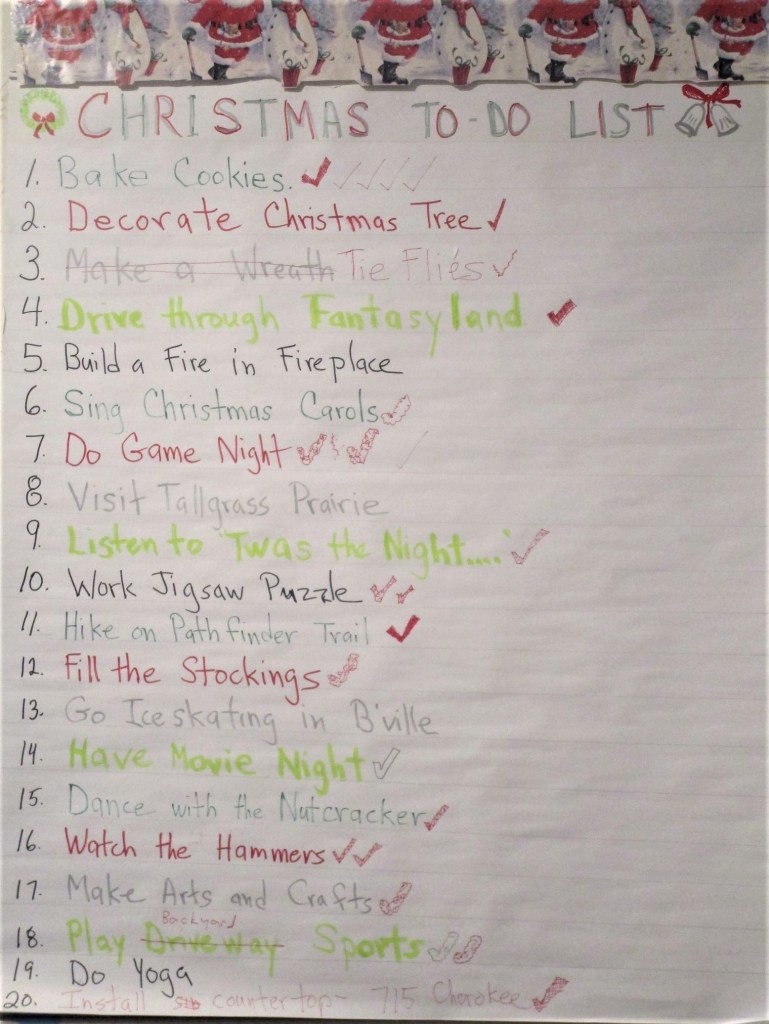 CHRISTMAS TO-DO LIST
1. Bake Cookies.
2. Decorate Christmas Tree
3. Make a Wreath Tie Flies
4. Drive through Fantasyland
5. Build a Fire in Fireplace
6. Sing Christmas Carols
7. Do Game Night
8. Visit Tallgrass Prairie
9. Listen to 'Twas the Night....'
10. Work Jigsaw Puzzle
11. Hike on Pathfinder Trail
12. Fill the Stockings
13. Go Iceskating in B'ville
14. Have Movie Night
15. Dance with the Nutcracker
16. Watch the Hammers
17. Make Arts and Crafts
Backyard
18. Play Driveway Sports
19. Do Yoga
20. Install countertop- 715 Cherokee